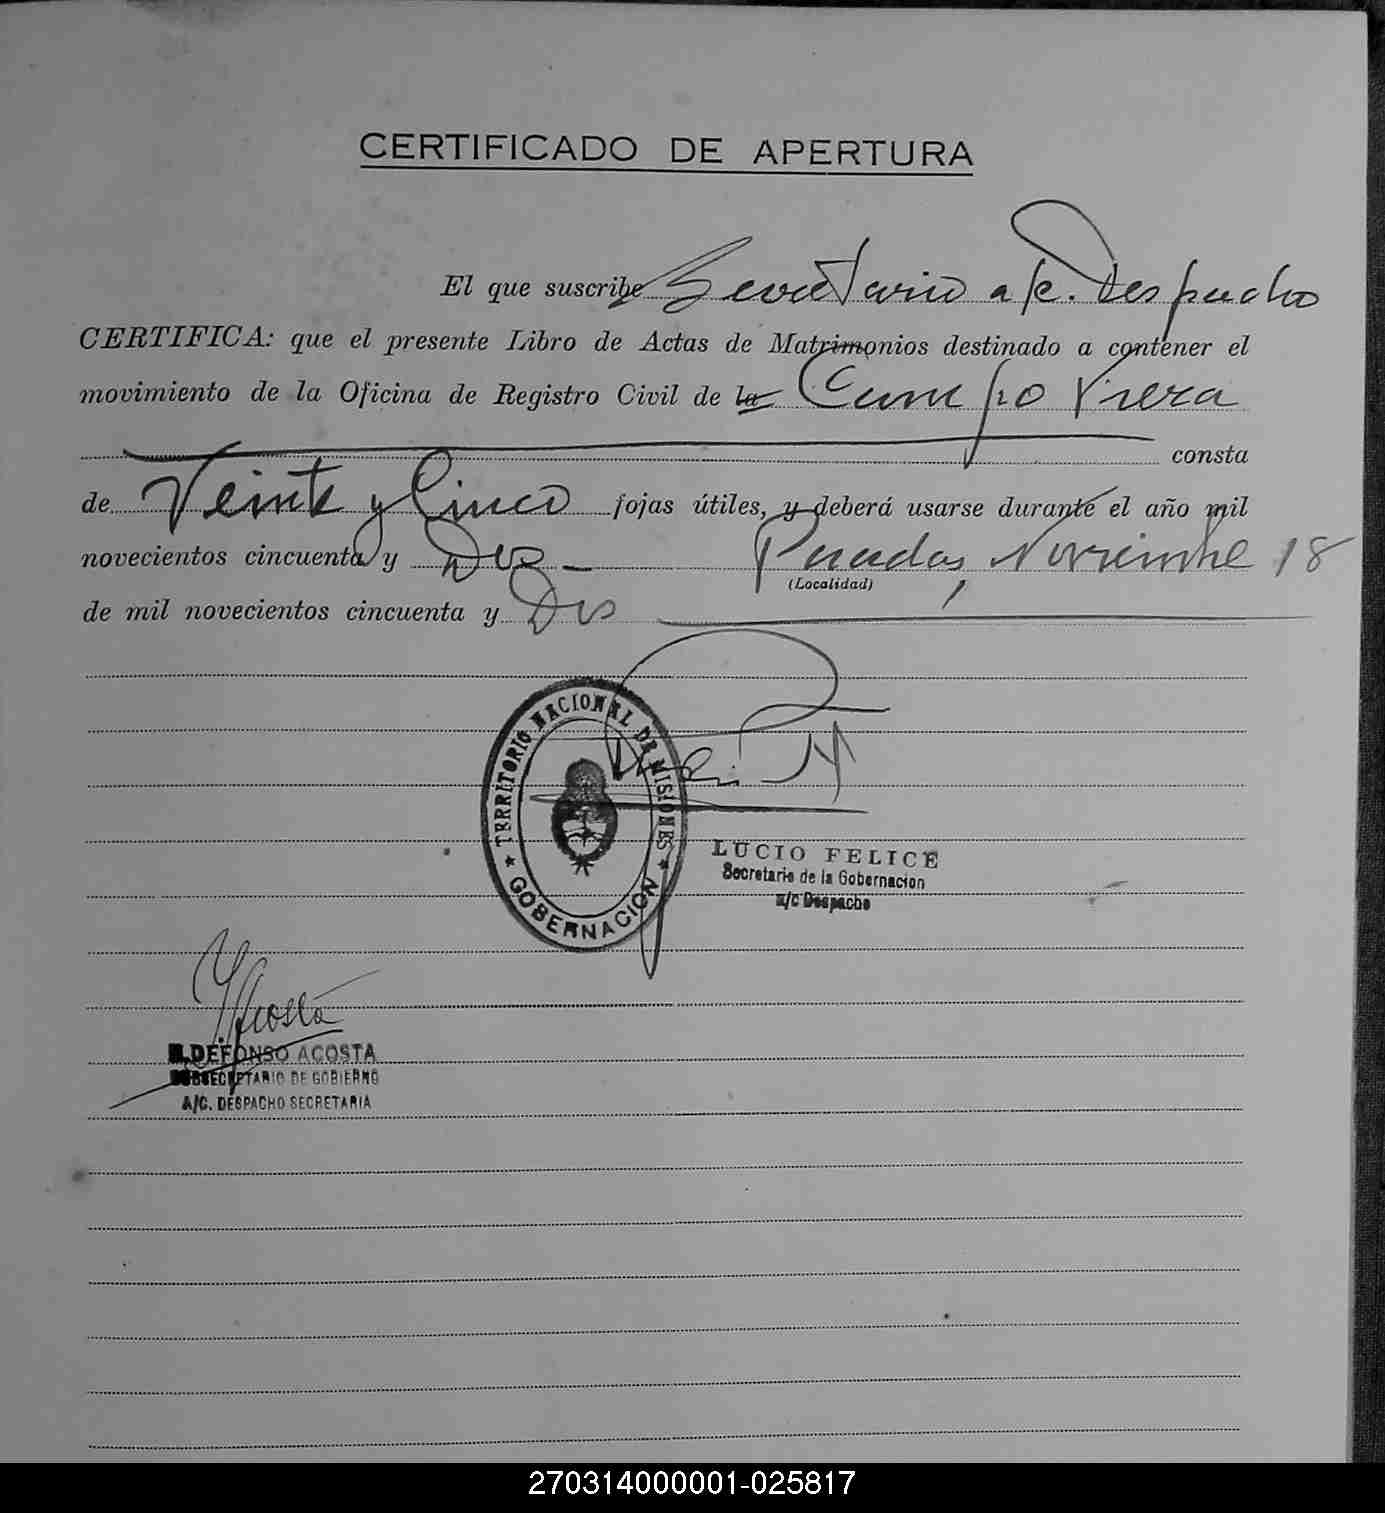 CERTIFICADO DE APERTURA
El que suscribe Secretario a/c. Despacho
CERTIFICA: que el presente Libro de Actas de Matrimonios destinado a contener el
movimiento de la Oficina de Registro Civil de la Campo Viera
consta
de Veinte y Cinco fojas útiles, y deberá usarse durante el año mil
novecientos cincuenta y Dos Posadas, Noviembre 18
(Localidad)
de mil novecientos cincuenta y Dos
TERRITORIO NACIONAL DE MISIONES
GOBERNACION
LUCIO FELICE
Secretario de la Gobernacion
a/c Despacho
Acosta
ILDEFONSO ACOSTA
SUBSECRETARIO DE GOBIERNO
A/C. DESPACHO SECRETARIA
270314000001-025817